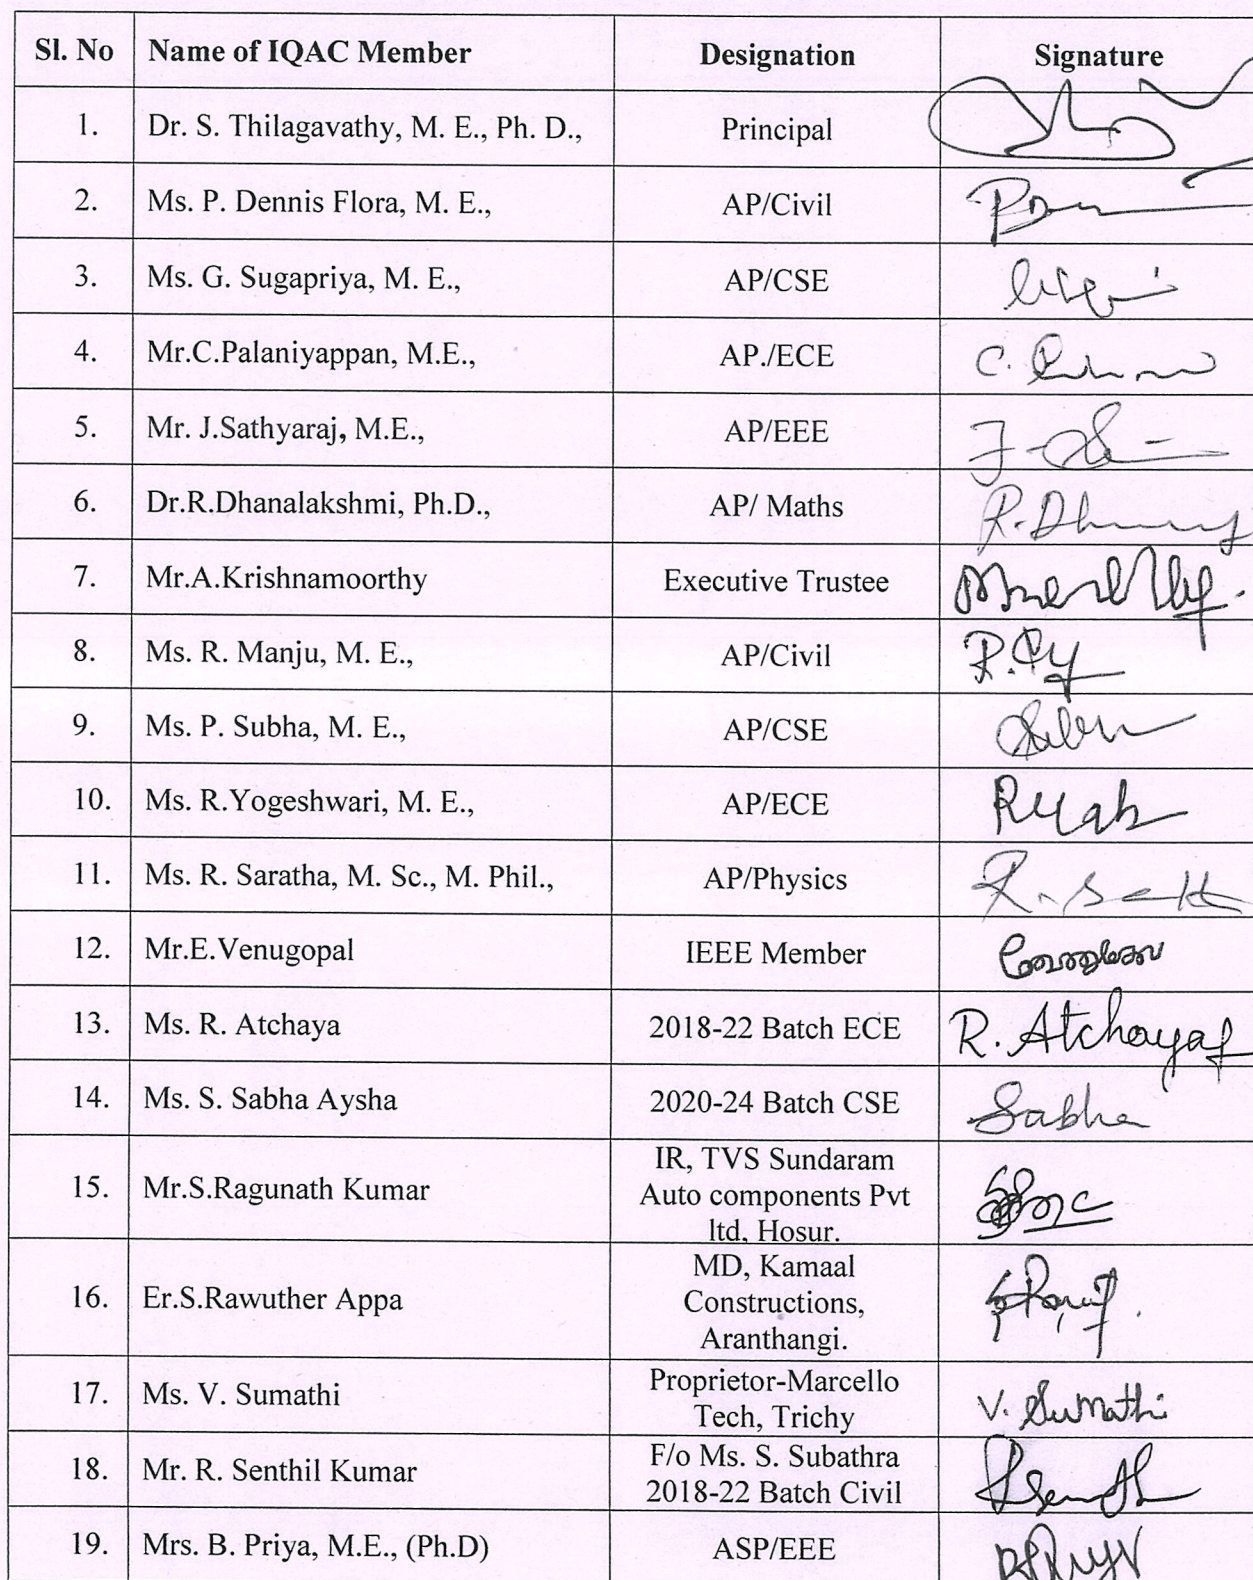 Sl. No Name of IQAC Member Designation Signature
1. Dr. S. Thilagavathy, M. E., Ph. D., Principal
2. Ms. P. Dennis Flora, M. E., AP/Civil
3. Ms. G. Sugapriya, M. E., AP/CSE
4. Mr.C.Palaniyappan, M.E., AP./ECE C.
5. Mr. J.Sathyaraj, M.E., AP/EEE
6. Dr.R.Dhanalakshmi, Ph.D., AP/ Maths
7. Mr.A.Krishnamoorthy Executive Trustee
8. Ms. R. Manju, M. E., AP/Civil
9. Ms. P. Subha, M. E., AP/CSE
10. Ms. R.Yogeshwari, M. E., AP/ECE
11. Ms. R. Saratha, M. Sc., M. Phil., AP/Physics
12. Mr.E.Venugopal IEEE Member
13. Ms. R. Atchaya 2018-22 Batch ECE R. Atchaya
14. Ms. S. Sabha Aysha 2020-24 Batch CSE Sabha
IR, TVS Sundaram
15. Mr.S.Ragunath Kumar Auto components Pvt
ltd, Hosur.
MD, Kamaal
16. Er.S.Rawuther Appa Constructions,
Aranthangi.
17. Ms. V. Sumathi Proprietor-Marcello V. Sumathi
Tech, Trichy
18. Mr. R. Senthil Kumar F/o Ms. S. Subathra
2018-22 Batch Civil
19. Mrs. B. Priya, M.E., (Ph.D) ASP/EEE